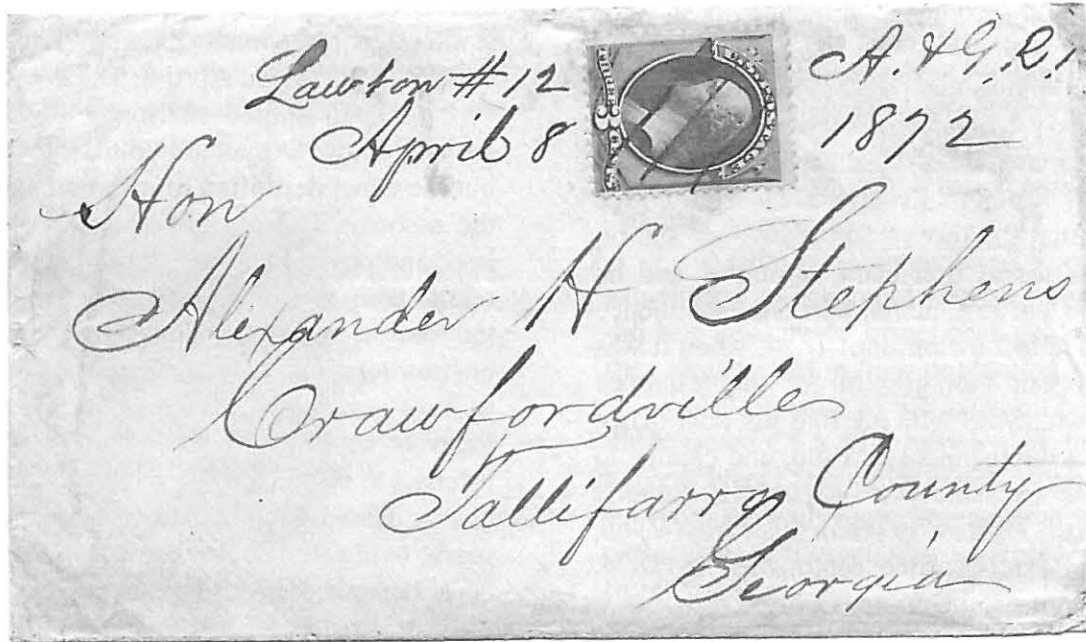 Lawton #12 A. & G. R.
April 8 1872
Hon
Alexander H Stephens
Crawfordville
Tallifarro County
Georgia